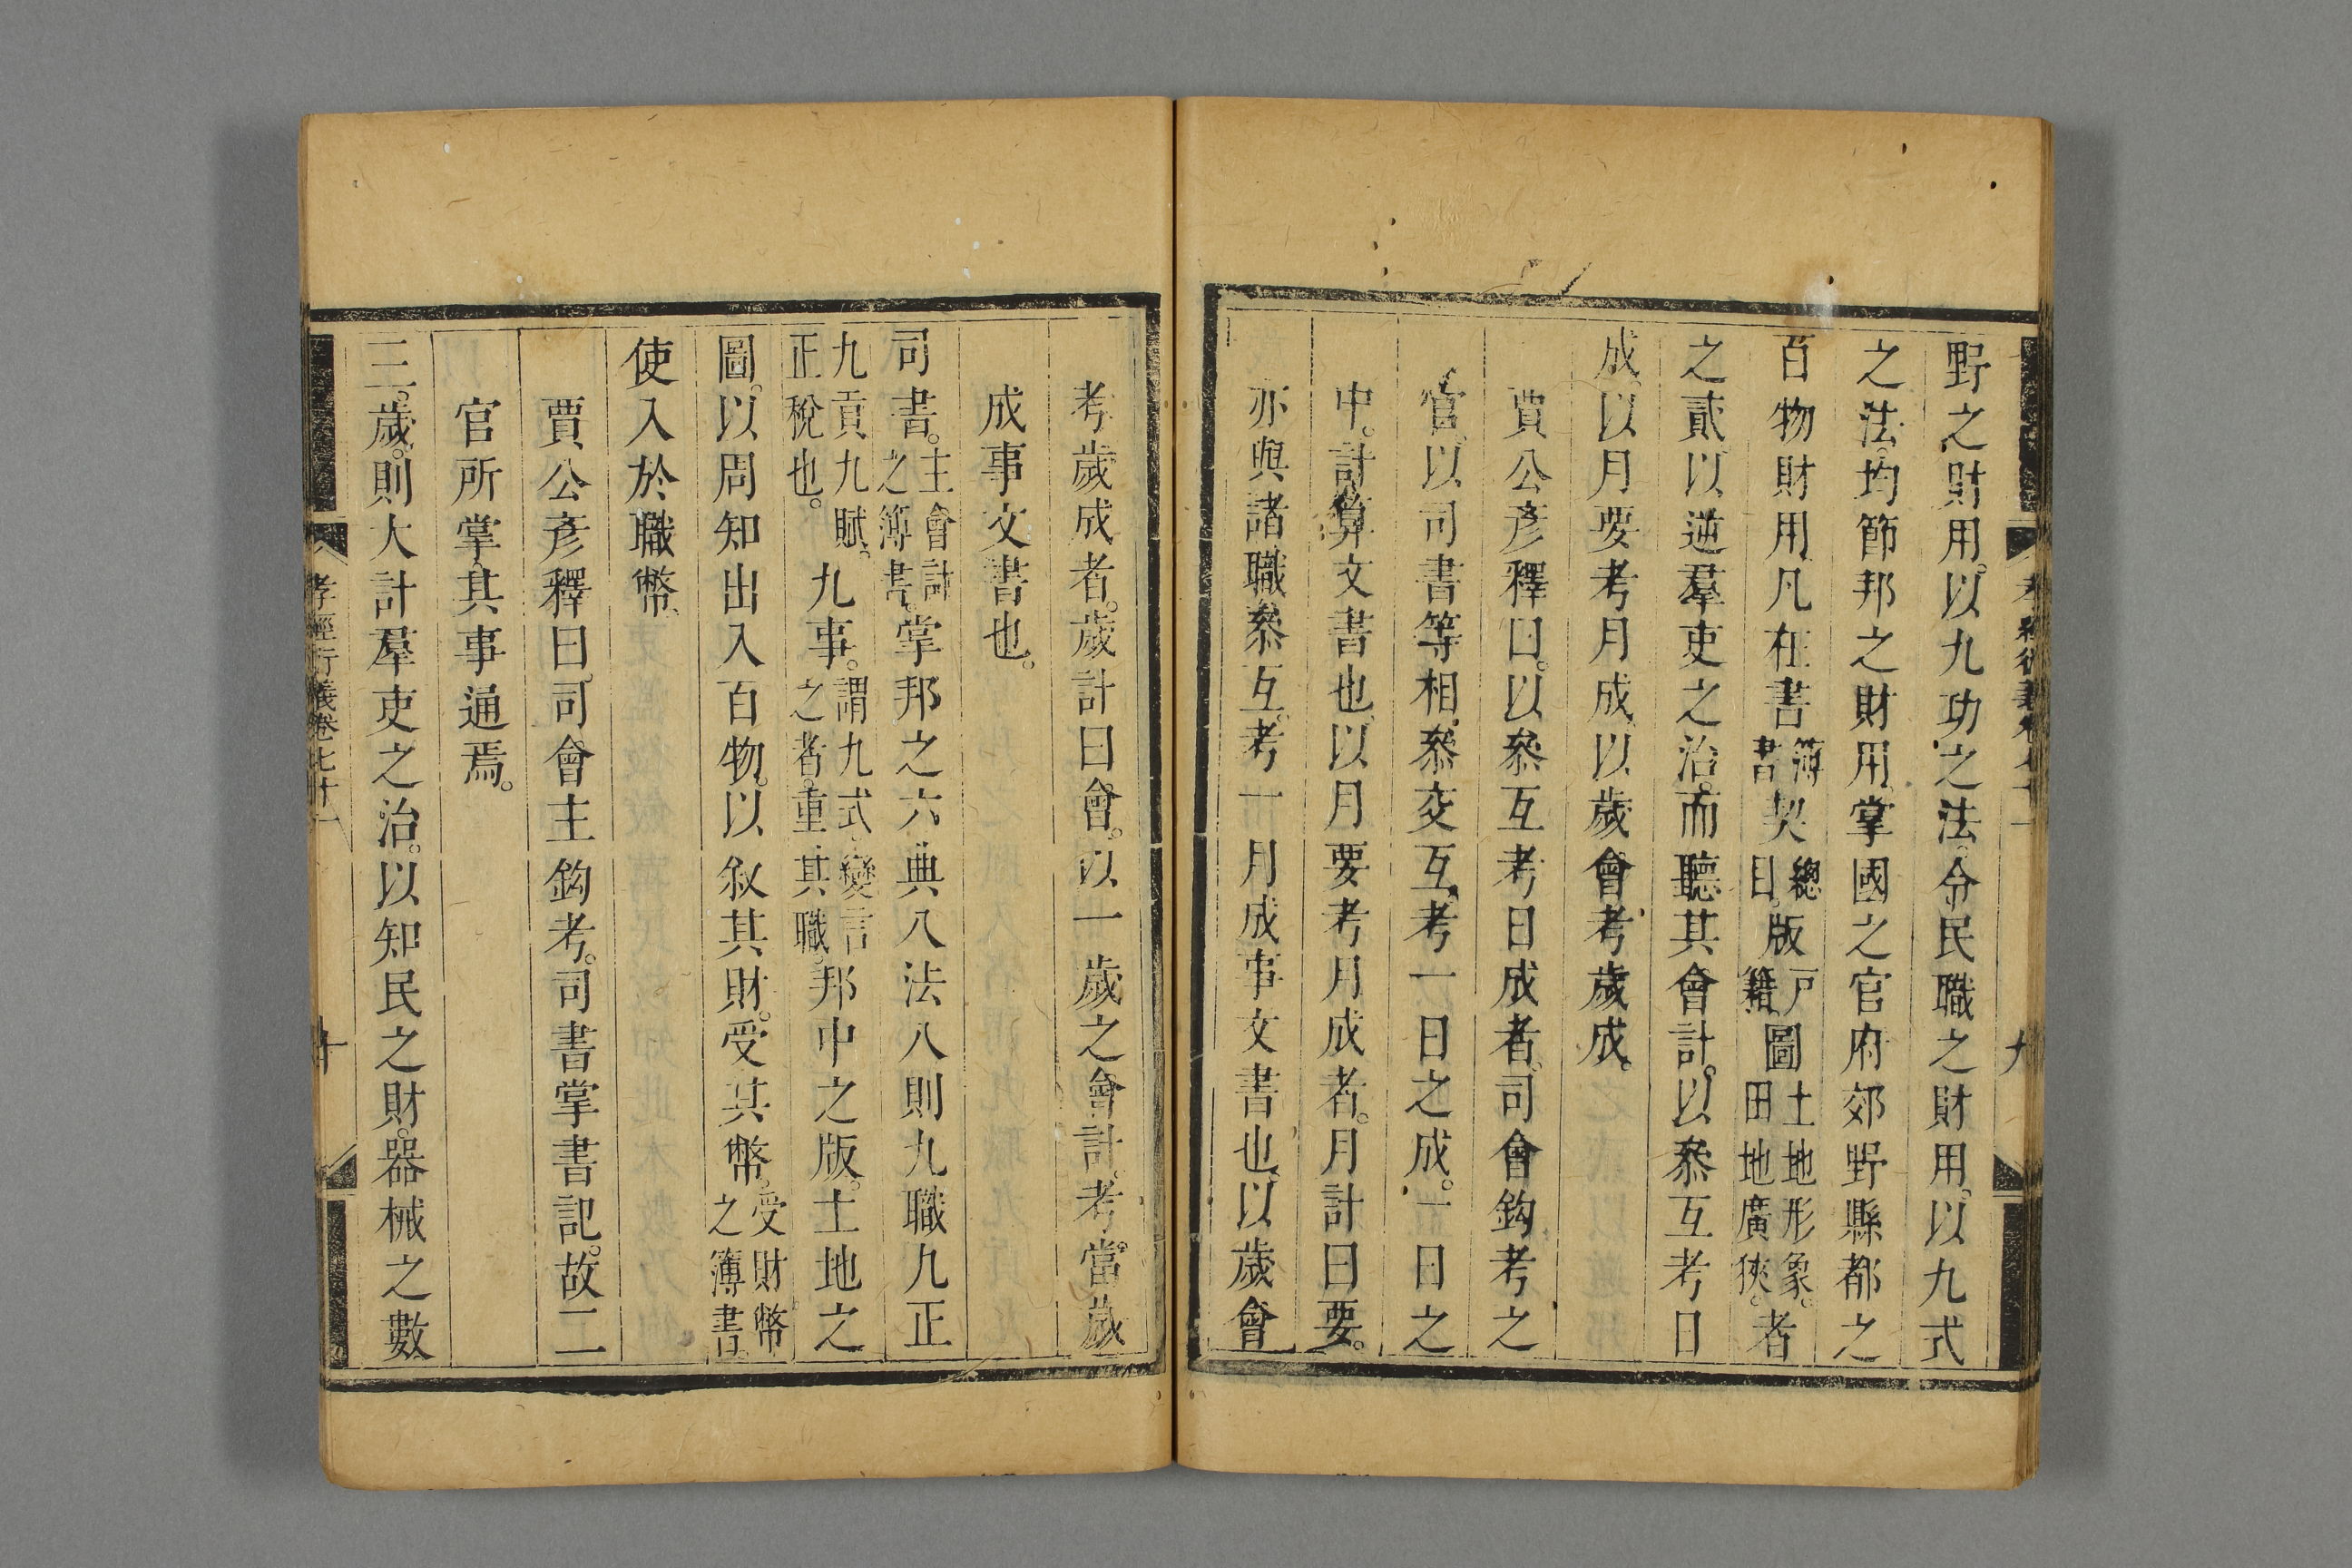 野之財用。以九功之法。令民職之財用。以九式
之法。均節邦之財用。掌國之官府郊野縣都之
百物財用。凡在書簿書契總目。版戶籍圖土地形象。田地廣狹。者
之貳。以逆羣吏之治。而聽其會計。以叅互考日
成。以月要考月成。以歲會考歲成。
賈公彥釋曰。以叅互考日成者。司會鈎考之
官。以司書等相叅交互。考一日之成。一日之
中。計算文書也。以月要考月成者。月計曰要。
亦與諸職叅互。考一月成事文書也。以歲會
考歲成者。歲計曰會。以一歲之會計。考當歲
成事文書也。
司書。主會計之簿書。掌邦之六典八法八則九職九正
九貢九賦。正稅也。九事。謂九式變言之者。重其職。邦中之版。土地之
圖。以周知出入百物。以敘其財。受其幣。受財幣之簿書。
使入於職幣。
賈公彥釋曰。司會主鈎考。司書掌書記。故二
官所掌。其事通焉。
三歲。則大計羣吏之治。以知民之財。器械之數
孝經衍義卷七十一
十